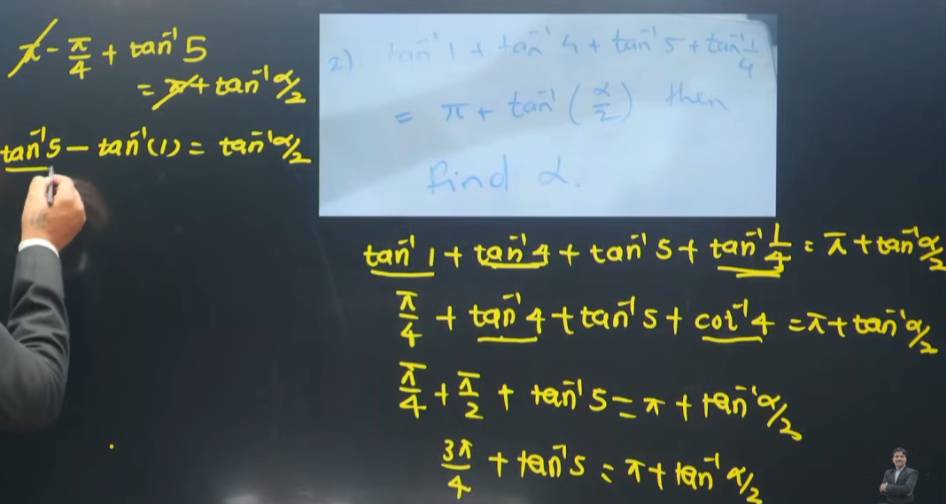 π - π/4 + tan⁻¹ 5
= π + tan⁻¹ α/2
tan⁻¹ 5 - tan⁻¹(1) = tan⁻¹ α/2
2) tan⁻¹ 1 + tan⁻¹ 4 + tan⁻¹ 5 + tan⁻¹ 1/4
= π + tan⁻¹ (α/2) then
find α.
tan⁻¹ 1 + tan⁻¹ 4 + tan⁻¹ 5 + tan⁻¹ 1/4 = π + tan⁻¹ α/2
π/4 + tan⁻¹ 4 + tan⁻¹ 5 + cot⁻¹ 4 = π + tan⁻¹ α/2
π/4 + π/2 + tan⁻¹ 5 = π + tan⁻¹ α/2
3π/4 + tan⁻¹ 5 = π + tan⁻¹ α/2